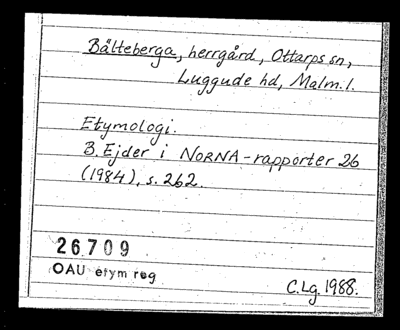 Bälteberga, herrgård, Ottarps sn,
Luggude hd, Malm. l.
Etymologi.
B. Ejder i NORNA-rapporter 26
(1984), s. 262.
26709
OAU etym reg
C.Lg. 1988.